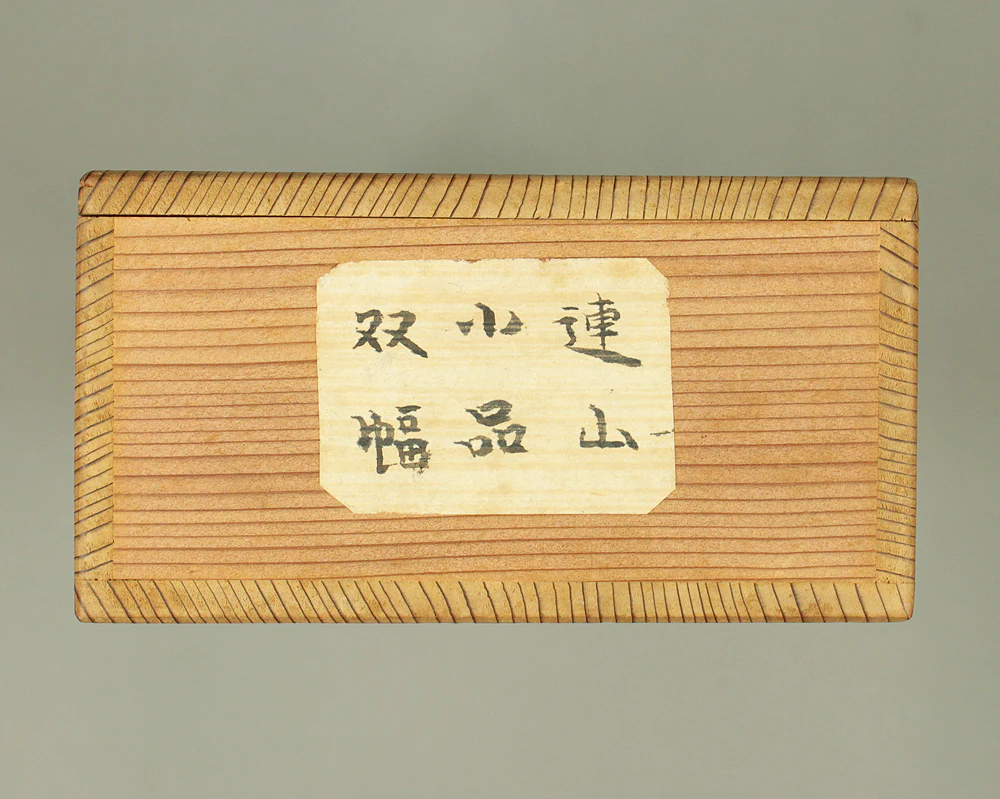 連山
小品
双幅